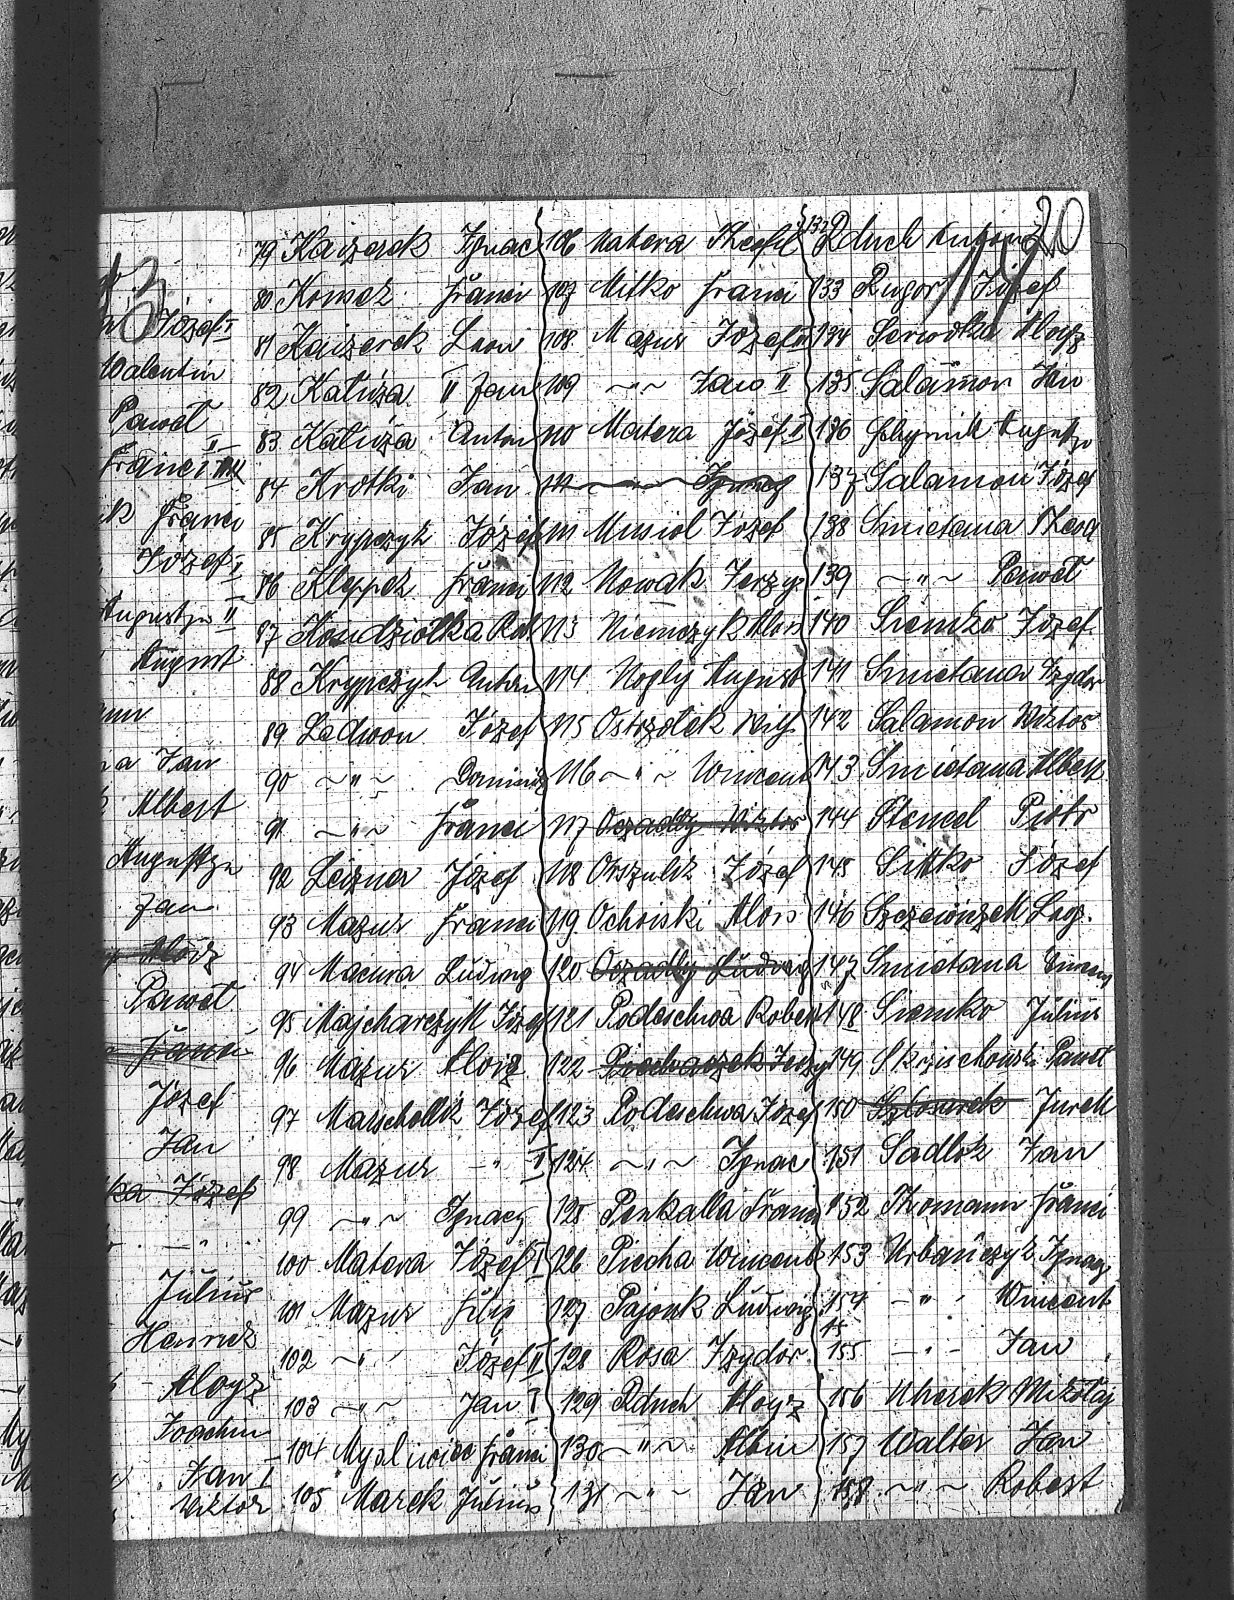 20
114
13
Józef I
Walentin
Paweł
Franci III
II
Franci
Józef I
Augustyn II
August
Jan
Albert
Augustyn
Jan
Aloiz
Paweł
Franci
Józef
Jan
Józef
- " -
Juliús
Henrick
Aloyz
Joachim
Jan I
Wiktor
79 Kaizerek Ignac
80 Konsek Franci
81 Kaizerek Leon
82 Katúza II Jan
83 Katúza Anton
84 Krotki Jan
85 Krypczyk Józef
86 Kleppek Franci
87 Kondziołka Rob
88 Krypczyk Anton
89 Ledwon Józef
90 ~ " ~ Dominik
91 ~ " ~ Franci
92 Leizner Józef
93 Mazur Franci
94 Macura Ludwig
95 Majcharczyk Józef
96 Mazur Aloiz
97 Marschollik Józef
98 Mazur - " - I
99 ~ " ~ Ignacy
100 Matera Józef I
101 Mazur Filip
102 ~ " ~ Józef II
103 ~ " ~ Jan I
104 Mysliwiec Franci
105 Marek Juliús
106 Matera Theofil
107 Mitko Franci
108 Mazur Józef III
109 ~ " ~ Jan II
110 Matera Józef II
111 ~ " ~ Ignacy
111 Musiol Józef
112 Nowak Jerzy
113 Niemczyk Alois
114 Noply August
115 Ostrzołek
116 ~ " ~ Wincent
117 Oczadły Wiktor
118 Orszulik Józef
119 Ochoiski Alois
120 Oczadły Ludwig
121 Podeschwa Robert
122 Piechaczek Jerzy
123 Podeschwa Józef
124 ~ " ~ Ignac
125 Penkalla Franci
126 Piecha Wincent
127 Pajonk Ludwig
128 Rosa Izydor
129 Rduch Aloyz
130 ~ " ~ Albin
131 ~ " ~ Jan
132 Rduch Antoni
133 Rugor Józef
134 Serwotka Aloyz
135 Salamon Jan
136 Augustyn
137 Salamon Józef
138 Smietana
139 ~ " ~ Paweł
140 Siemko Józef
141 Smietana Izydor
142 Salamon Wiktor
143 Smietana Albert
144 Stencel Piotr
145 Sittko Józef
146
147 Smietana
148 Siemko Juliús
149 Paweł
150 Jurek
151 Sadlok Jan
152 Thomann Franci
153 Urbańczyk Ignacy
154 - " - Wincent
15
155 - " - Jan
156 Uherek Mikołaj
157 Walter Jan
158 ~ " ~ Robert